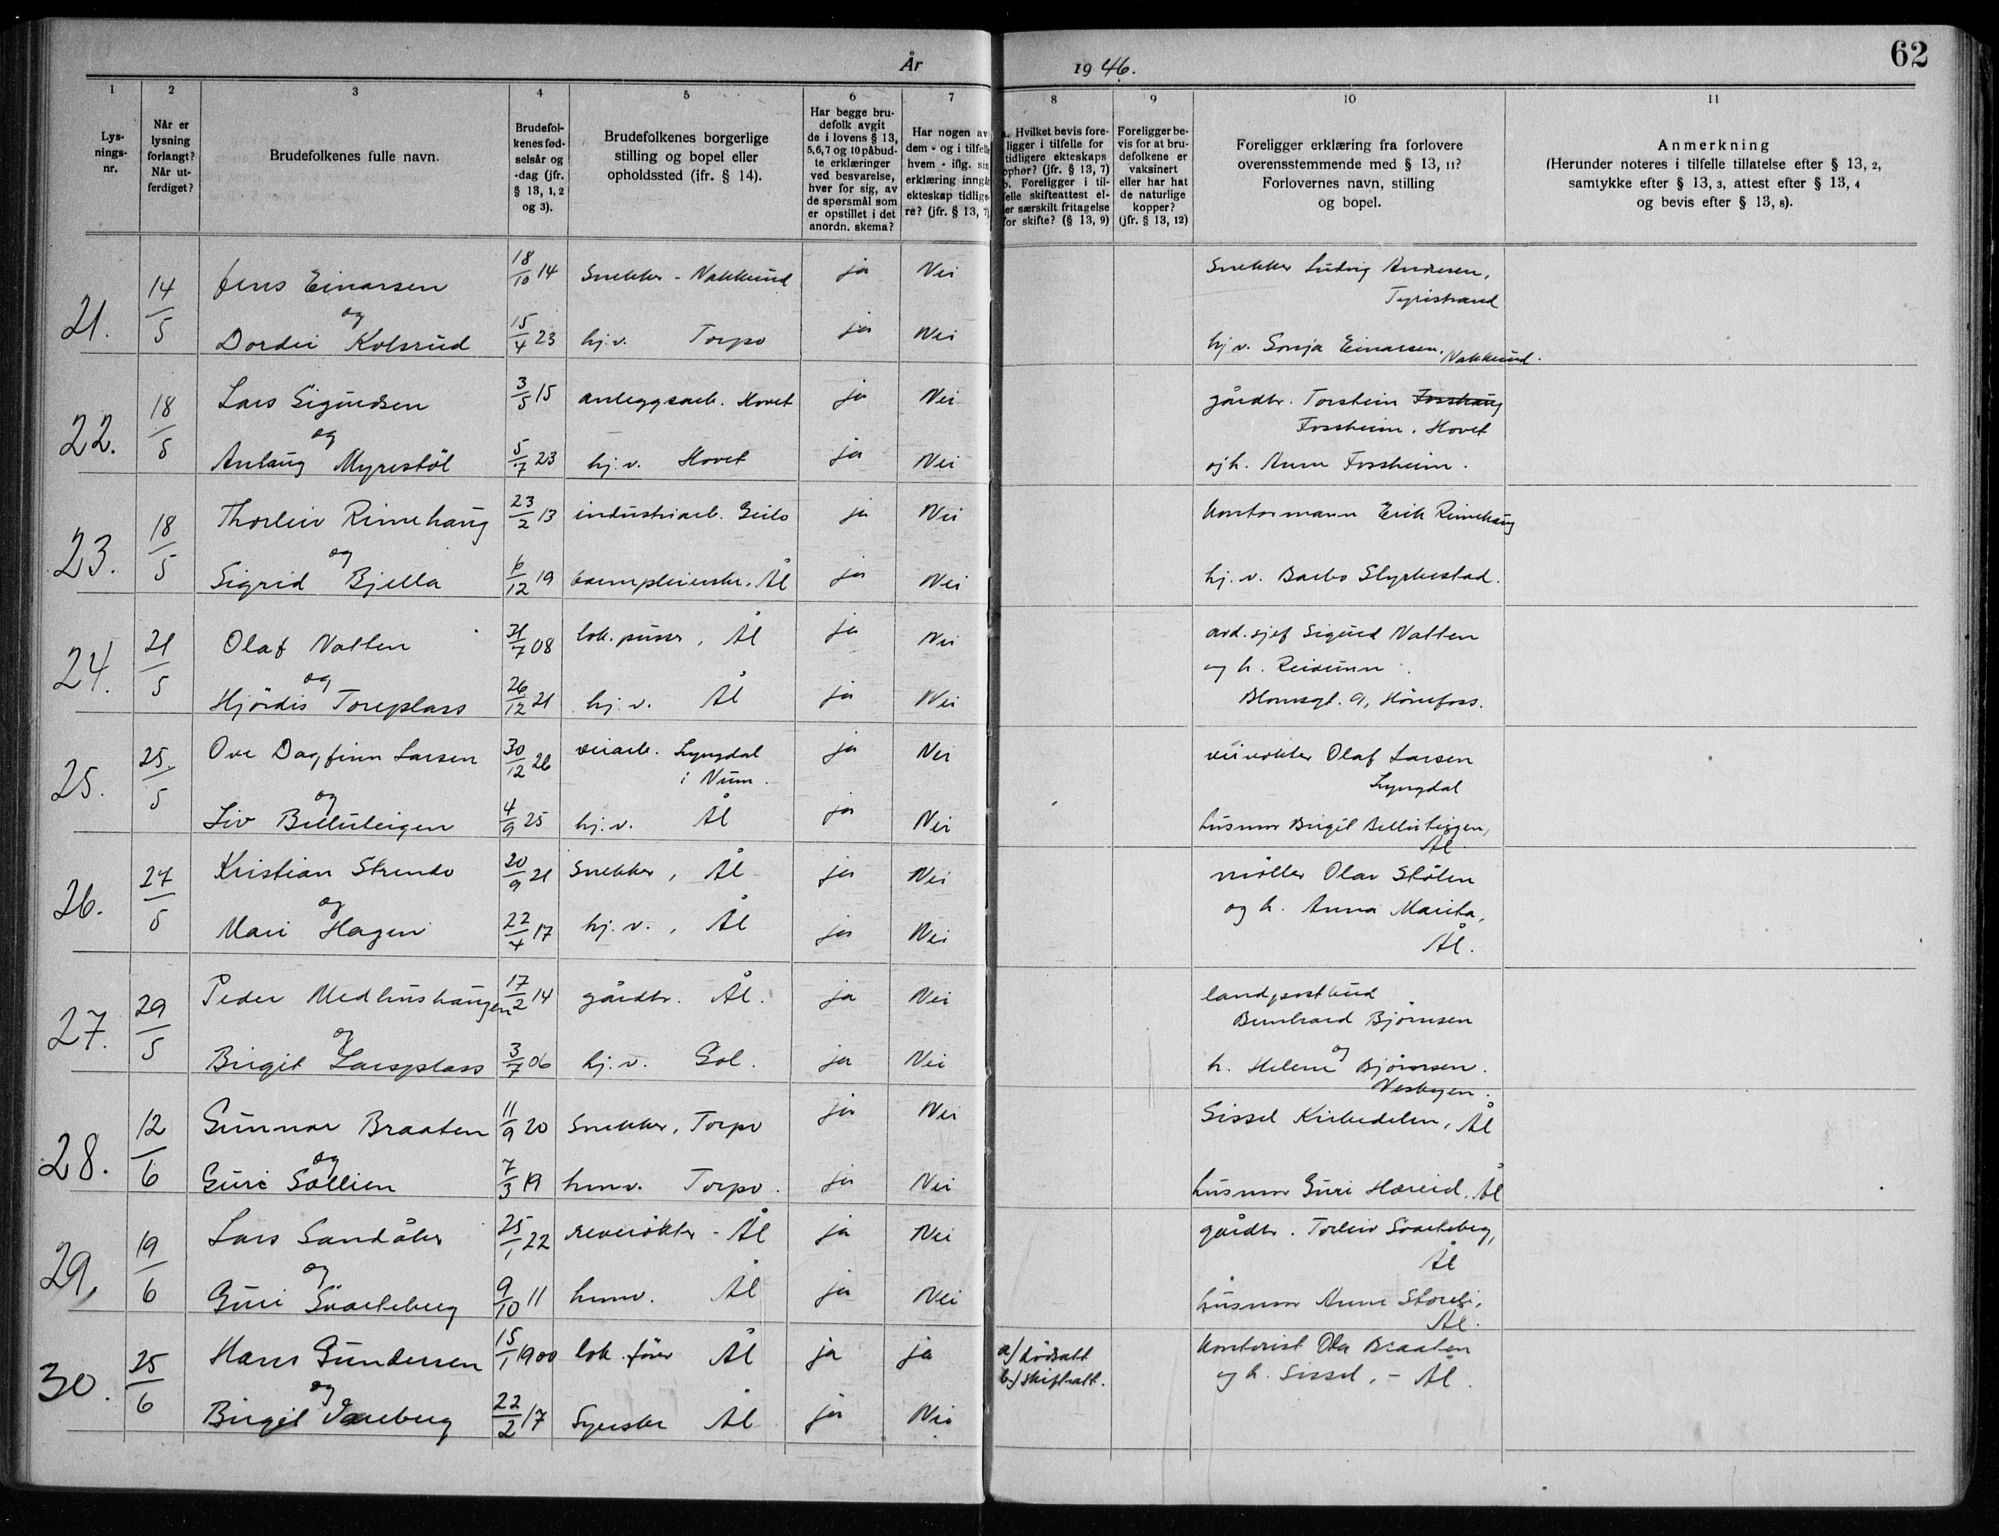 År 1946.
62
1 2 3 4 5 6 7 8 9 10 11
Lys-
nings-
nr.
Når er
lysning
forlangt?
Når ut-
ferdiget?
Brudefolkenes fulle navn.
Brudefol-
kenes fød-
selsår og
-dag (jfr.
§ 13, 1, 2
og 3).
Brudefolkenes borgerlige
stilling og bopel eller
opholdssted (ifr. § 14).
Har begge bru-
defolk avgit
de i lovens § 13,
5,6,7 og 10 påbud-
te erklæringer
ved besvarelse,
hver for sig, av
de spørsmål som
er opstillet i det
anordn. skema?
Har nogen av
dem - og i tilfelle
hvem - iflg. sin
erklæring inngåt
ekteskap tidlige-
re? (jfr. § 13, 7)
a. Hvilket bevis fore-
ligger i tilfelle for
tidligere ekteskaps
ophør? (jfr. § 13, 7)
b. Foreligger i til-
felle skifteattest el-
ler særskilt fritagelse
for skifte? (§ 13, 9)
Foreligger be-
vis for at bru-
defolkene er
vaksinert
eller har hat
de naturlige
kopper?
(jfr. § 13, 12)
Foreligger erklæring fra forlovere
overensstemmende med § 13, 11?
Forlovernes navn, stilling
og bopel.
Anmerkning
(Herunder noteres i tilfelle tillatelse efter § 13, 2,
samtykke efter § 13, 3, attest efter § 13, 4
og bevis efter § 13, 8).
21. 14/5 Jens Einarsen 18/10 14 Snekker - Nakkerud ja Nei Snekker Ludvig Andresen,
Tyristrand
og
Dordei Kolsrud 15/4 23 hj.v. Torpo ja Nei hj.v. Sonja Einarsen, Nakkerud.
22. 18/5 Lars Sigurdsen 3/5 15 anleggsarb. Hovet ja Nei gårdbr. Torstein Fosshaug
Fossheim, Hovet
og
Anlaug Myrestöl 5/7 23 hj.v. Hovet ja Nei og h. Anne Fossheim.
23. 18/5 Thorleiv Rimehaug 23/2 13 industriarb. Geilo ja Nei Kontormann Erik Rimehaug
og
Sigrid Bjella 6/12 19 ja Nei hj.v. Barbo Styrkestad.
24. 21/5 Olaf Natten 31/7 08 lok.pusser, Ål ja Nei avd.sjef Sigurd Natten
og h. Reidunn
og
Hjördis Toreplass 26/12 21 hj.v. Ål ja Nei Blomsgt. 9, Hönefoss.
25. 25./5 Ove Dagfinn Larsen 30/12 26 veiarb. Lyngdal
i Num. ja Nei veivokter Olaf Larsen
Lyngdal
og
Liv Belluleigen 4/9 25 hj.v. Ål ja Nei husmor Birgit
Ål.
26. 27/5 Kristian Strendo 20/9 21 Snekker, Ål ja Nei möller Olav Stölen
og h. Anna Marita,
Ål.
og
Mari Hagen 22/4 17 hj.v., Ål ja Nei
27. 29/5 Peder Medhushaugen 17/2 14 gårdbr. Ål. ja Nei landpostbud
Bernhard Bjørnsen
og
Birgit Larsplass 3/7 06 hj.v. Gol. ja Nei og
h. Helene Bjørnsen.
28. 12/6 Gunnar Braaten 11/9 20 Snekker, Torpo ja Nei Sissel Kirkedelen, Ål
og
Guri Sollien 7/3 19 husv. Torpo. ja Nei husmor Guri Hæreid, Ål
29. 19/6 Lars Sandåker 25/1 22 revrökter - Ål ja Nei gårdbr. Torleiv Svarteberg,
Ål
og
Guri Svarteberg 9/10 11 husv. Ål ja Nei husmor Anne
Ål.
30. 25/6 Hans Gundersen 15/1 1900 lok.fører Ål ja ja a/ dödsatt
b/ skifteatt. Kontorist Ola Braaten
og h. Sissel, - Ål.
og
Birgit 22/2 17 Syerske Ål ja Nei